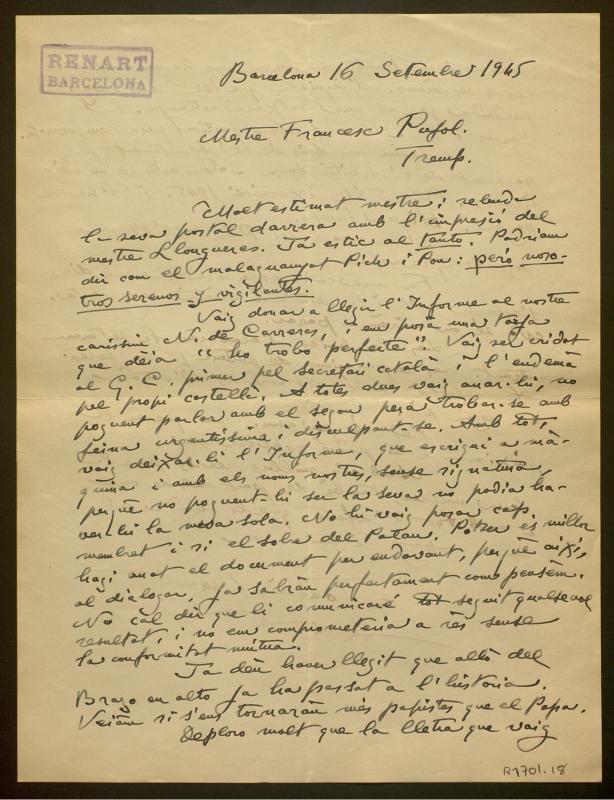 RENART
BARCELONA
Barcelona 16 Setembre 1945
Mestre Francesc Pujol.
Tremp.
Molt estimat mestre i rebuda
la seva postal darrera amb l'impresió del
mestre Llongueres. Ja estic al tanto. Podriam
dir com el malaguanyat Pich i Pon: peró noso-
tros seremos y vigilantes.
Vaig donar a llegir l'Informe al nostre
caríssim N. de Carreras, i em posà una tarja
que deia "Ho trobo perfecte". Vaig ser cridat
al G. C. primer pel secretari català i l'endemà
pel propi costellà. A totes dues vaig anar-hi, no
poguent parlar amb el segon però trobar-se amb
feina urgentissima i disculpant-se. Amb tot,
vaig deixar-li l'Informe, que escrigui a mà-
quina i amb els noms nostres, sense signatura,
perquè no poguent-hi ser la seva no podia ha-
ver-hi la meva sola. No hi vaig posar cap
membret i si el sobre del Patan. Potser és millor
hagi anat el document per endavant, perquè així,
al dialogar, ja sabràn perfectament com pensèm.
No cal dir que li comunicaré tot seguit qualsevol
resultat, i no em comprometeria a rès sense
la conformitat mútua.
Ja deu haver llegit que allò del
Brazo en alto ja ha passat a l'història.
Veiam si s'ens tornaràn més papistes que el Papa.
Deploro molt que la lletra que vaig
R1701.18